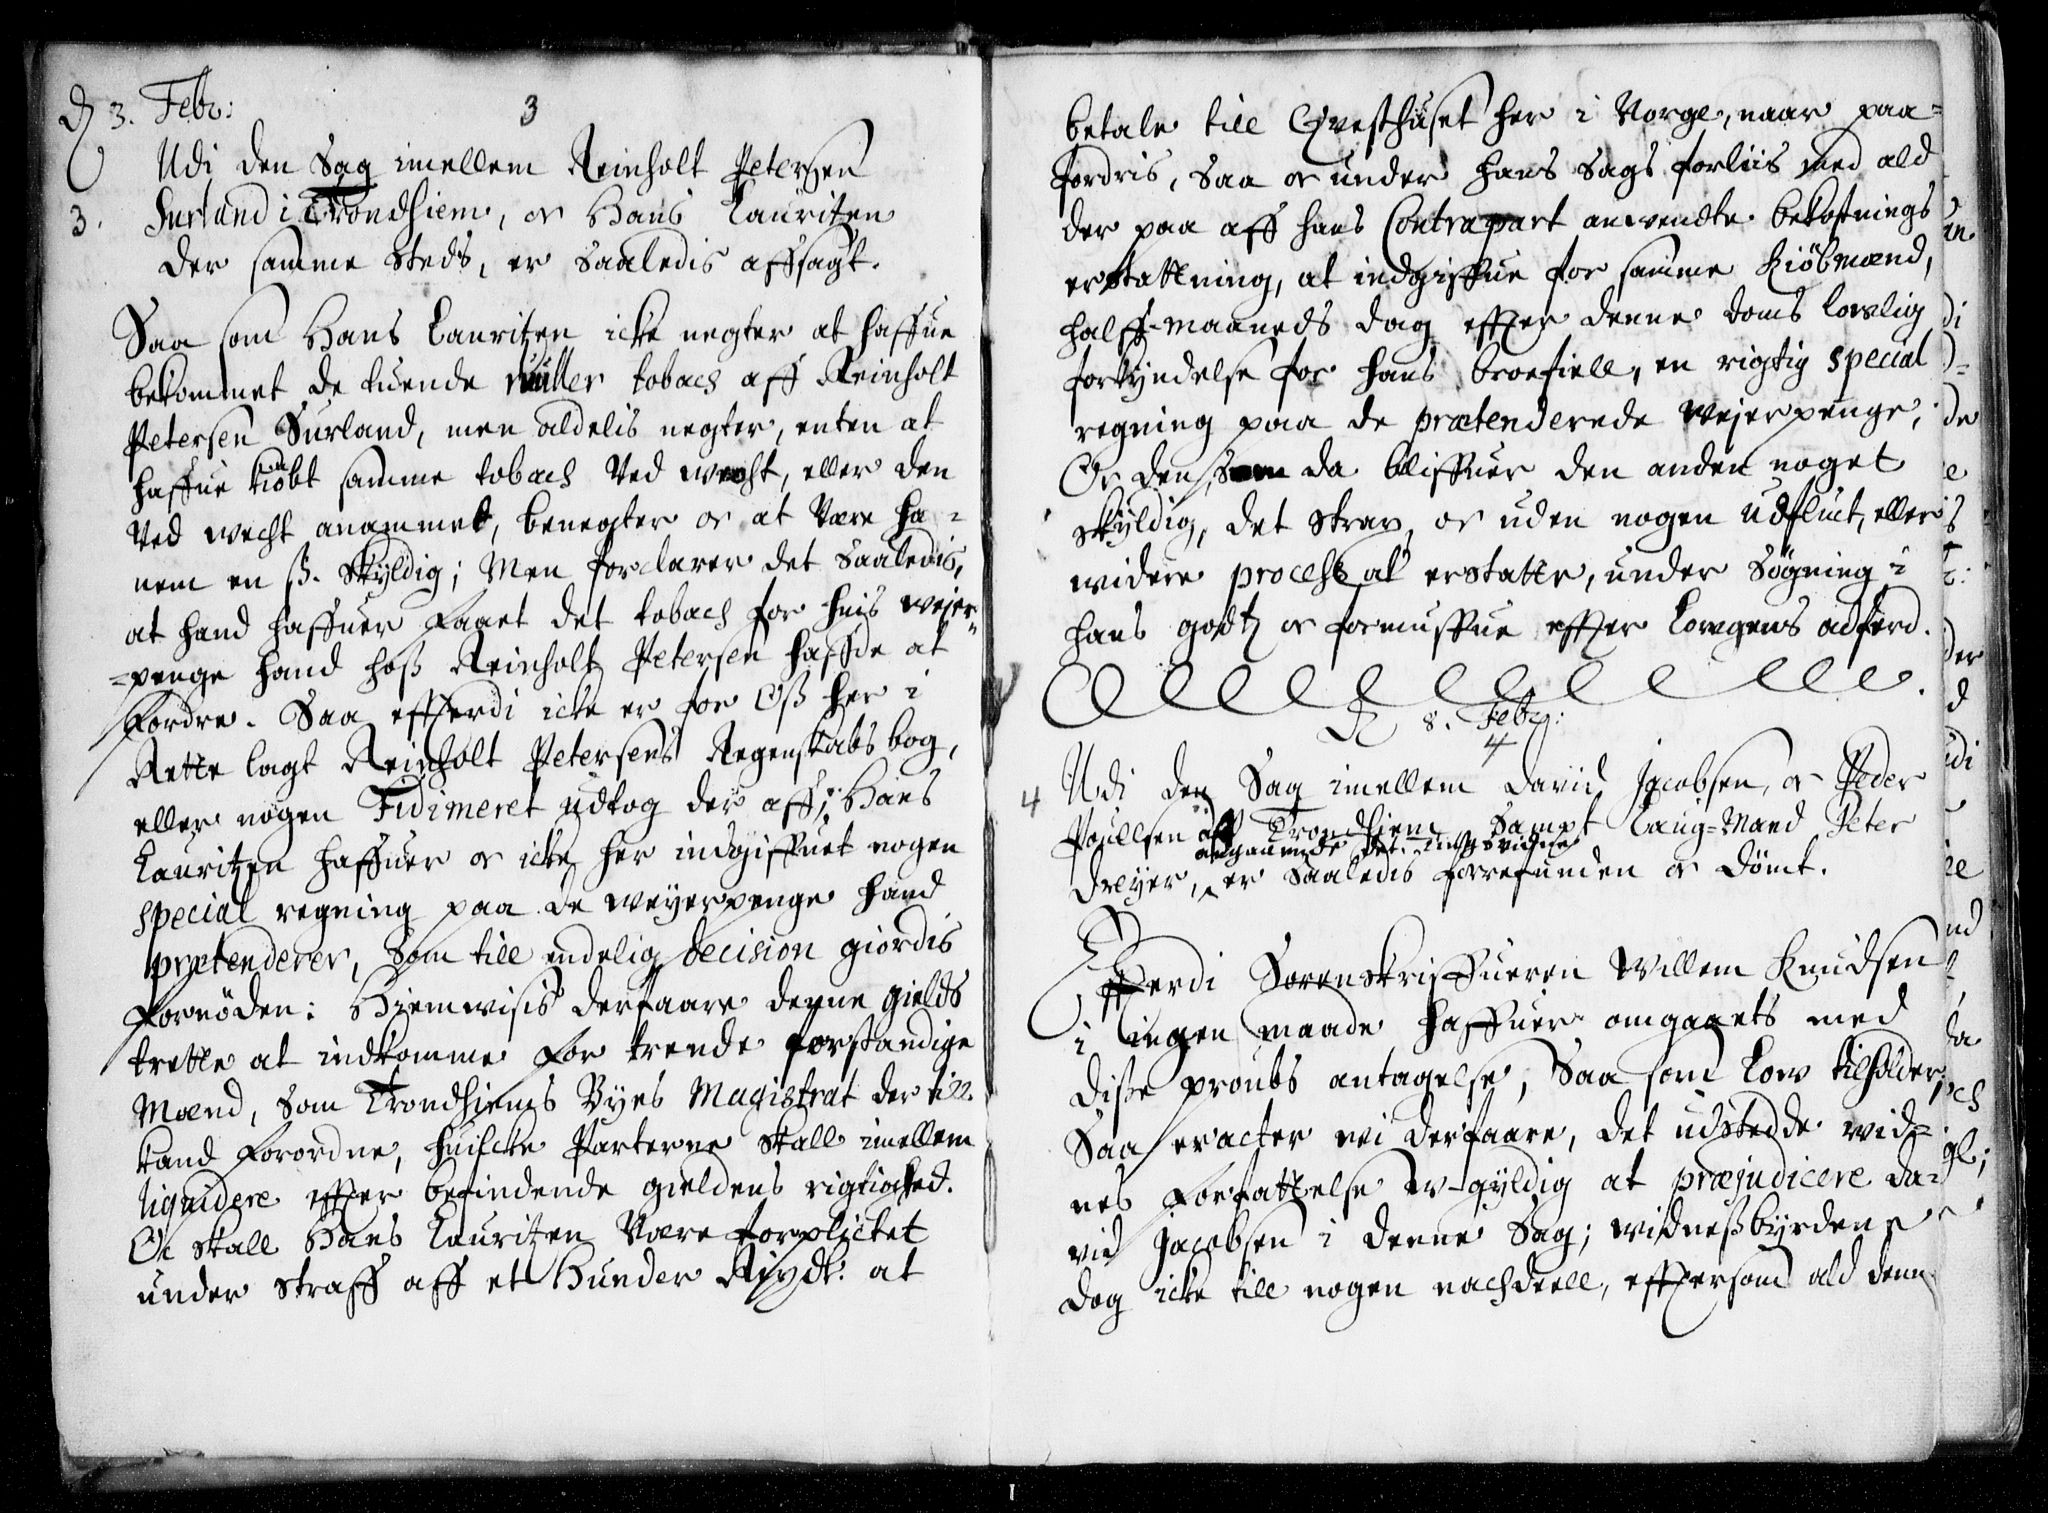 D 3. Febr:
3
Udi den Sag imellem Reinholt Petersen
3. Surland i Trondhiem, oc Hans Lauritzen
der samme steds, er saaledis affsagt.
Saa som Hans Lauritzen icke negter at haffue
bekommet de tuende ruller tobach aff Reinholt
Petersen Surland, men aldelis negter, enten at
haffue kiöbt samme tobach Ved wecht, eller den
Ved wecht anammet, benegter oc at Vere ha-
nem en ß. skyldig; Men forclarer det saaledis,
at hand haffuer Faaet det tobach for huis weyer-
=penge hand hoß Reinholt Petersen haffde at
fordre. Saa effterdi icke er for Oß her i
Rette lagt Reinholt Petersens Regenskabs bog,
eller nogen Fidimeret udtog der aff; Hans
Lauritzen haffuer oc icke her indgiffuet nogen
special regning paa de weyerpenge hand
prætenderer, som till endelig decision giordis
fornöden: Hiemwisis derfaare denne gields
trette at indkomme for trende forstandige
Mænd, som Trondhiems Byes Magistrat der till
kand forordne, huilcke Parterne skall imellem
liquidere effter befindende gieldens rigtighed.
Oc skall Hans Lauritzen Vere forplictet
under straff aff et Hunder Rixdr: at
betale till Qvesthuset her i Norge, naar paa-
fordris, saa oc under hans sags forliis med ald
der paa aff hans Contrapart anvendte bekostnings
erstattning, at indgiffue for samme Kiöbmænd,
halff-maaneds dag effter denne doms lowlig
forkyndelse for hans broefiell, en rigtig special
regning paa de prætenderede weyerpenge;
Oc den, som da bliffuer den anden noget
skyldig, det strax, oc uden nogen udfluct, eller
widere process at erstatte, under Sögning i
hans godtz oc formuffue effter Lowgens adferd.
D 8. Febr:
4
4 Udi den Sag imellem David Jacobsen, oc Peder
Poullsen aff Trondhiem sampt Laug=Mand Peter
angaaende det
Dreyer, er saaledis forrefunden oc dömt.
Effterdi Sorenskriffueren Willem Knudsen
i ingen maade haffuer omgaaets med
diße proubs antagelse, saa som Low tilholder,
Saa eracter wi derfaare, det udstedde wid-
nes forfattelse w-gyldig at præjudicere Da-
vid Jacobsen i denne Sag; widneßbyrdene
dog icke till nogen nachdeell, efftersom ald denn